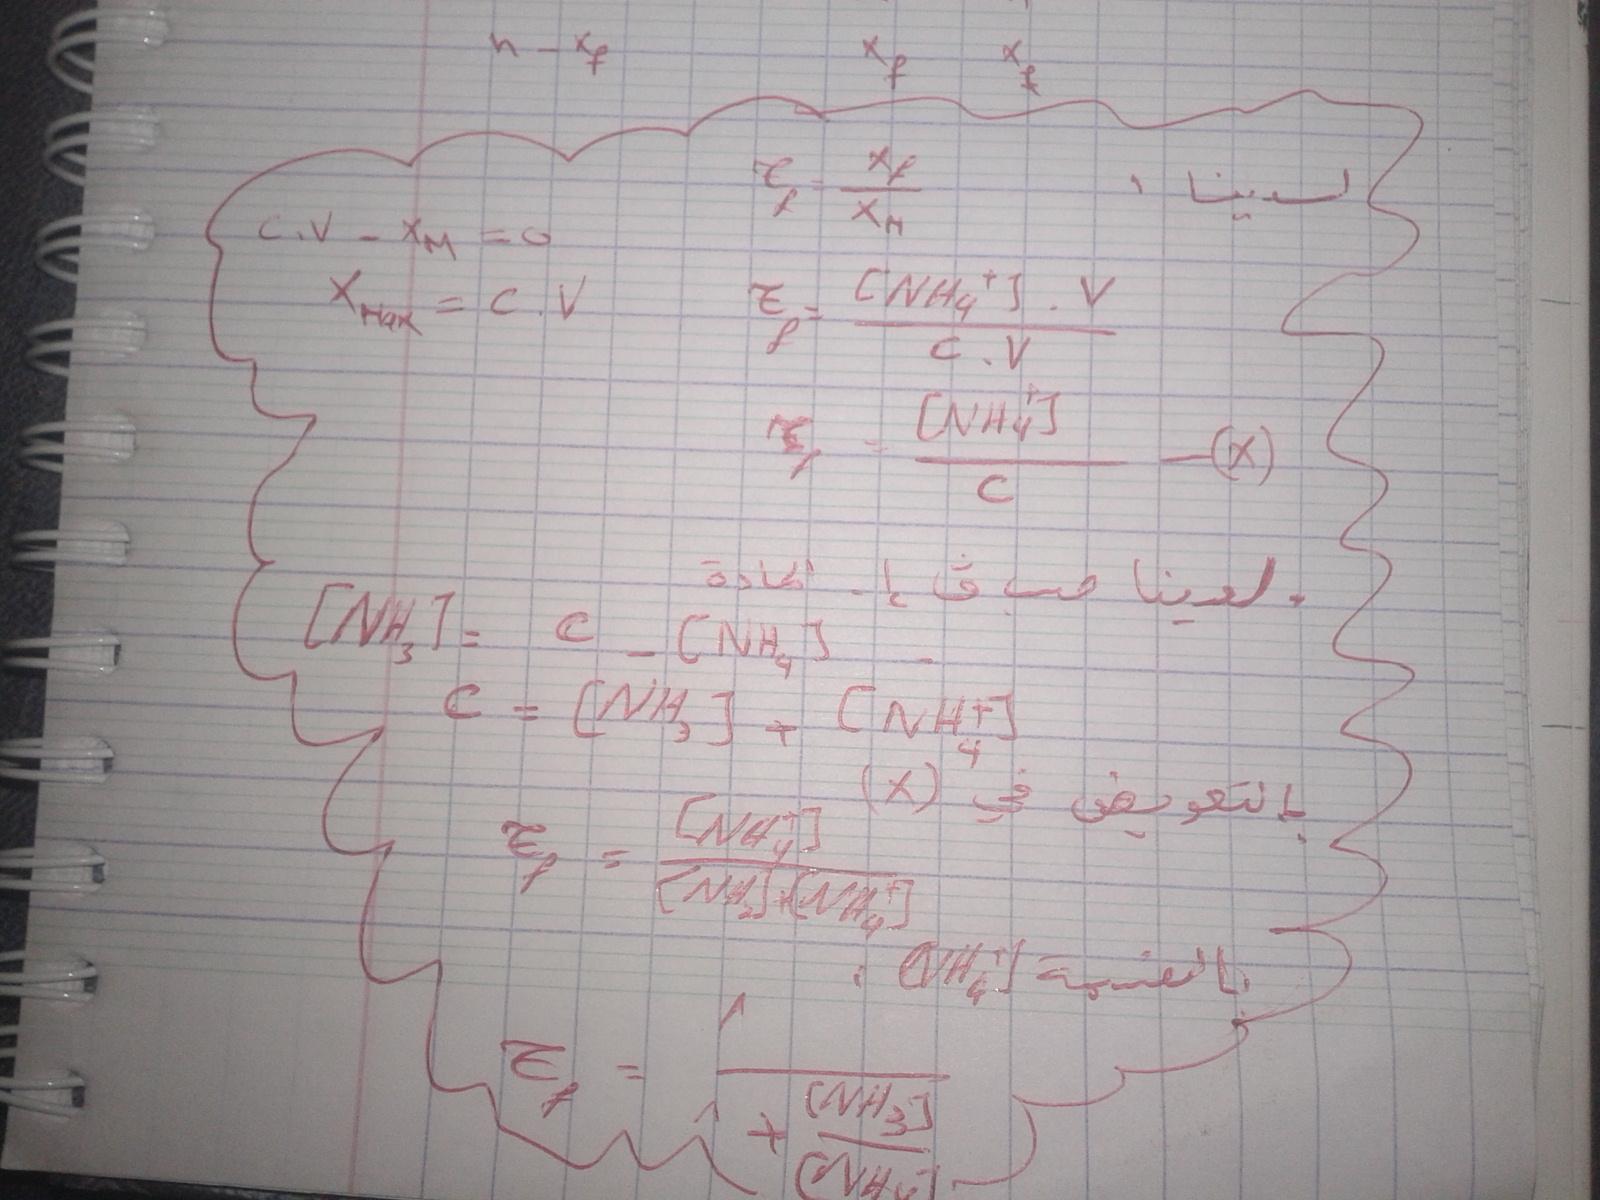 n - xf xf xf
لدينا : τf = xf / xM
c.V - xM = 0
xMax = c.V
τf = [NH4+].V / c.V
τf = [NH4+] / c —(X)
لدينا مما سبق
[NH3] = c - [NH4]
c = [NH3] + [NH4+]
بالتعويض في (X)
τf = [NH4+] / [NH3]+[NH4+]
[NH4+]
τf = 1 / 1 + [NH3] / [NH4+]